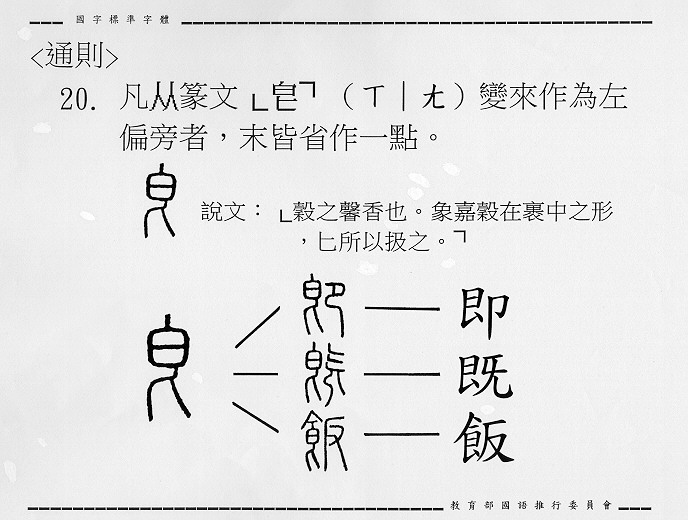 國字標準字體
<通則>
20. 凡从篆文「皀」（ㄒㄧㄤ）變來作為左
偏旁者，末皆省作一點。
說文：「穀之馨香也。象嘉穀在裹中之形
，匕所以扱之。」
即
既
飯
教育部國語推行委員會